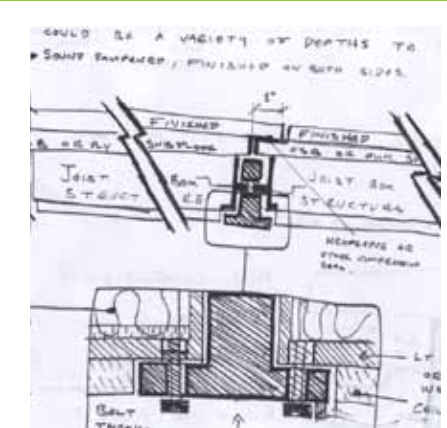 COULD BE A VARIETY OF DEPTHS TO
SOUND DAMPENED, FINISHED ON BOTH SIDES.
1"
FINISHED
FINISHED
OR PLY SUBFLOOR
OSB OR
JOIST
STRUCT
BOX
JOIST BOX
STRUCTURE
NEOPRENE OR
OTHER COMPRESSION
LT
OR
BOLT